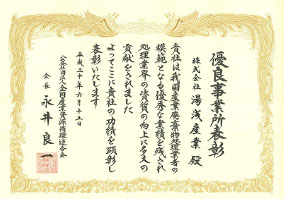 優良事業所表彰
株式会社 湯浅産業 殿
貴社は我国産業廃棄物処理業者の
模範となる優秀な業績を残され
処理業界の資質の向上に多大の
貢献をされました
よってここに貴社の功績を顕彰し
表彰いたします
平成二十年六月十三日
会長 永井良一